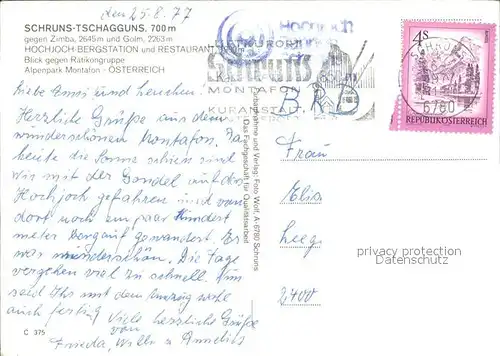 den 25.8.77
SCHRUNS-TSCHAGGUNS, 700 m
gegen Zimba, 2645 m und Golm, 2263 m
HOCHJOCH-BERGSTATION und RESTAURANT
Blick gegen Rätikongruppe
Alpenpark Montafon - ÖSTERREICH
Hochjoch
KURORT
Schruns
MONTAFON
KURANSTALT
4S
SCHRUNS
6780
REPUBLIK ÖSTERREICH
BRD
Liebe Emmi und
Herzliche Grüße aus dem
wunderschönen Montafon. Da
heute die Sonne schien sind
wir mit der Gondel auf das
Hochjoch gefahren und von
dort noch ein paar Hundert
meter Bergauf gewandert. Es
war wunderschön. Die Tage
vergehen viel zu schnell. Nun
seid Ihr mit dem Umzug wohl
auch fertig. Viele herzliche Grüße
von
Frieda, Willi u. Annelies
C 375
Aufnahme und Verlag: Foto Wolf, A-6780 Schruns
Das Fachgeschäft für Qualitätsarbeit
Frau
2400
privacy protection
Datenschutz